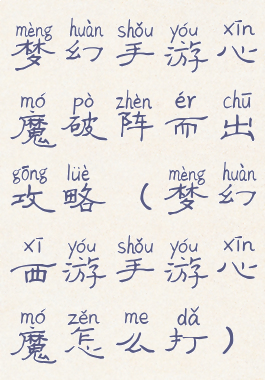 mèng huàn shǒu yóu xīn
梦幻手游心
mó pò zhèn ér chū
魔破阵而出
gōng lüè mèng huàn
攻略（梦幻
xī yóu shǒu yóu xīn
西游手游心
mó zěn me dǎ
魔怎么打）